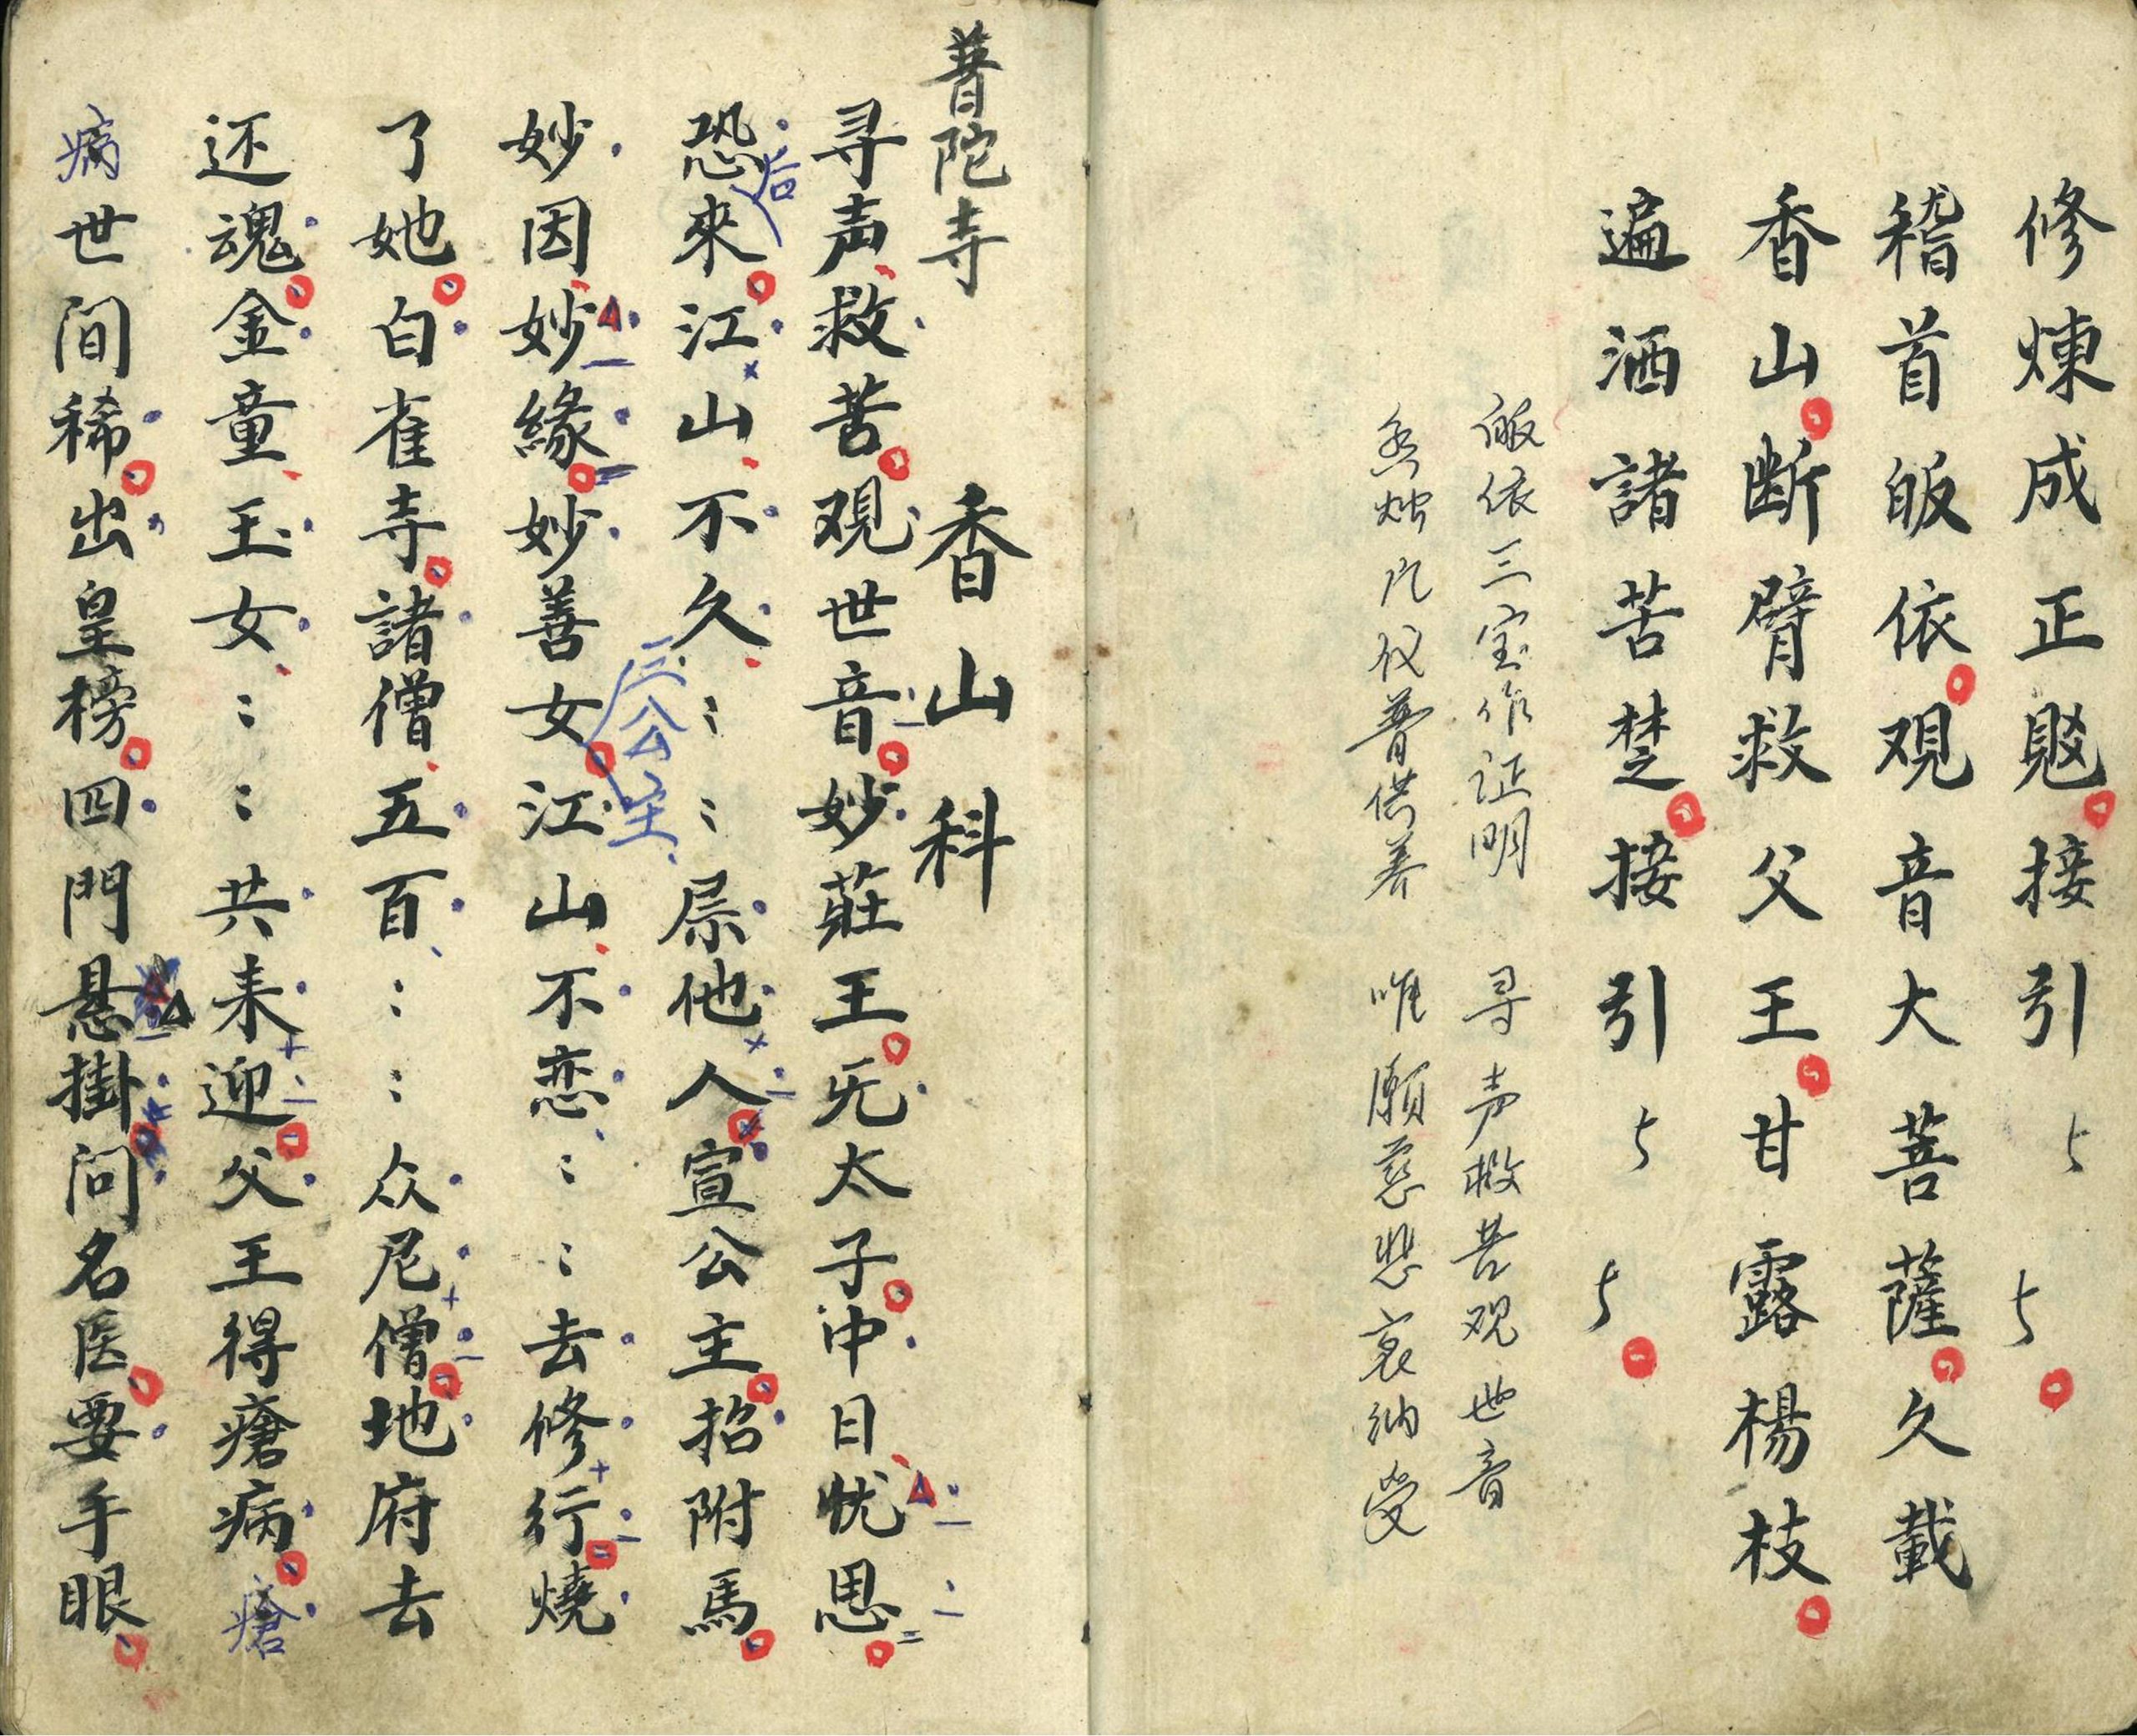 修煉成正覐接引ㄣㄣ
稽首皈依观音大菩薩久載
香山断臂救父王甘露楊枝
遍洒諸苦楚接引ㄣㄣ
皈依三宝作证明 寻声救苦观世音
香烛凡仪普供养 唯願慈悲哀纳受
普陀寺
香山科
寻声救苦观世音妙莊王旡太子冲日忧思
恐來江山不久：：屬他人宣公主招附馬
后
妙因妙緣妙善女江山不恋：：去修行燒
三公主
了她白雀寺諸僧五百：：众尼僧地府去
还魂金童玉女：：共耒迎父王得瘡病瘡
病世间稀出皇榜四門悬掛问名医要手眼